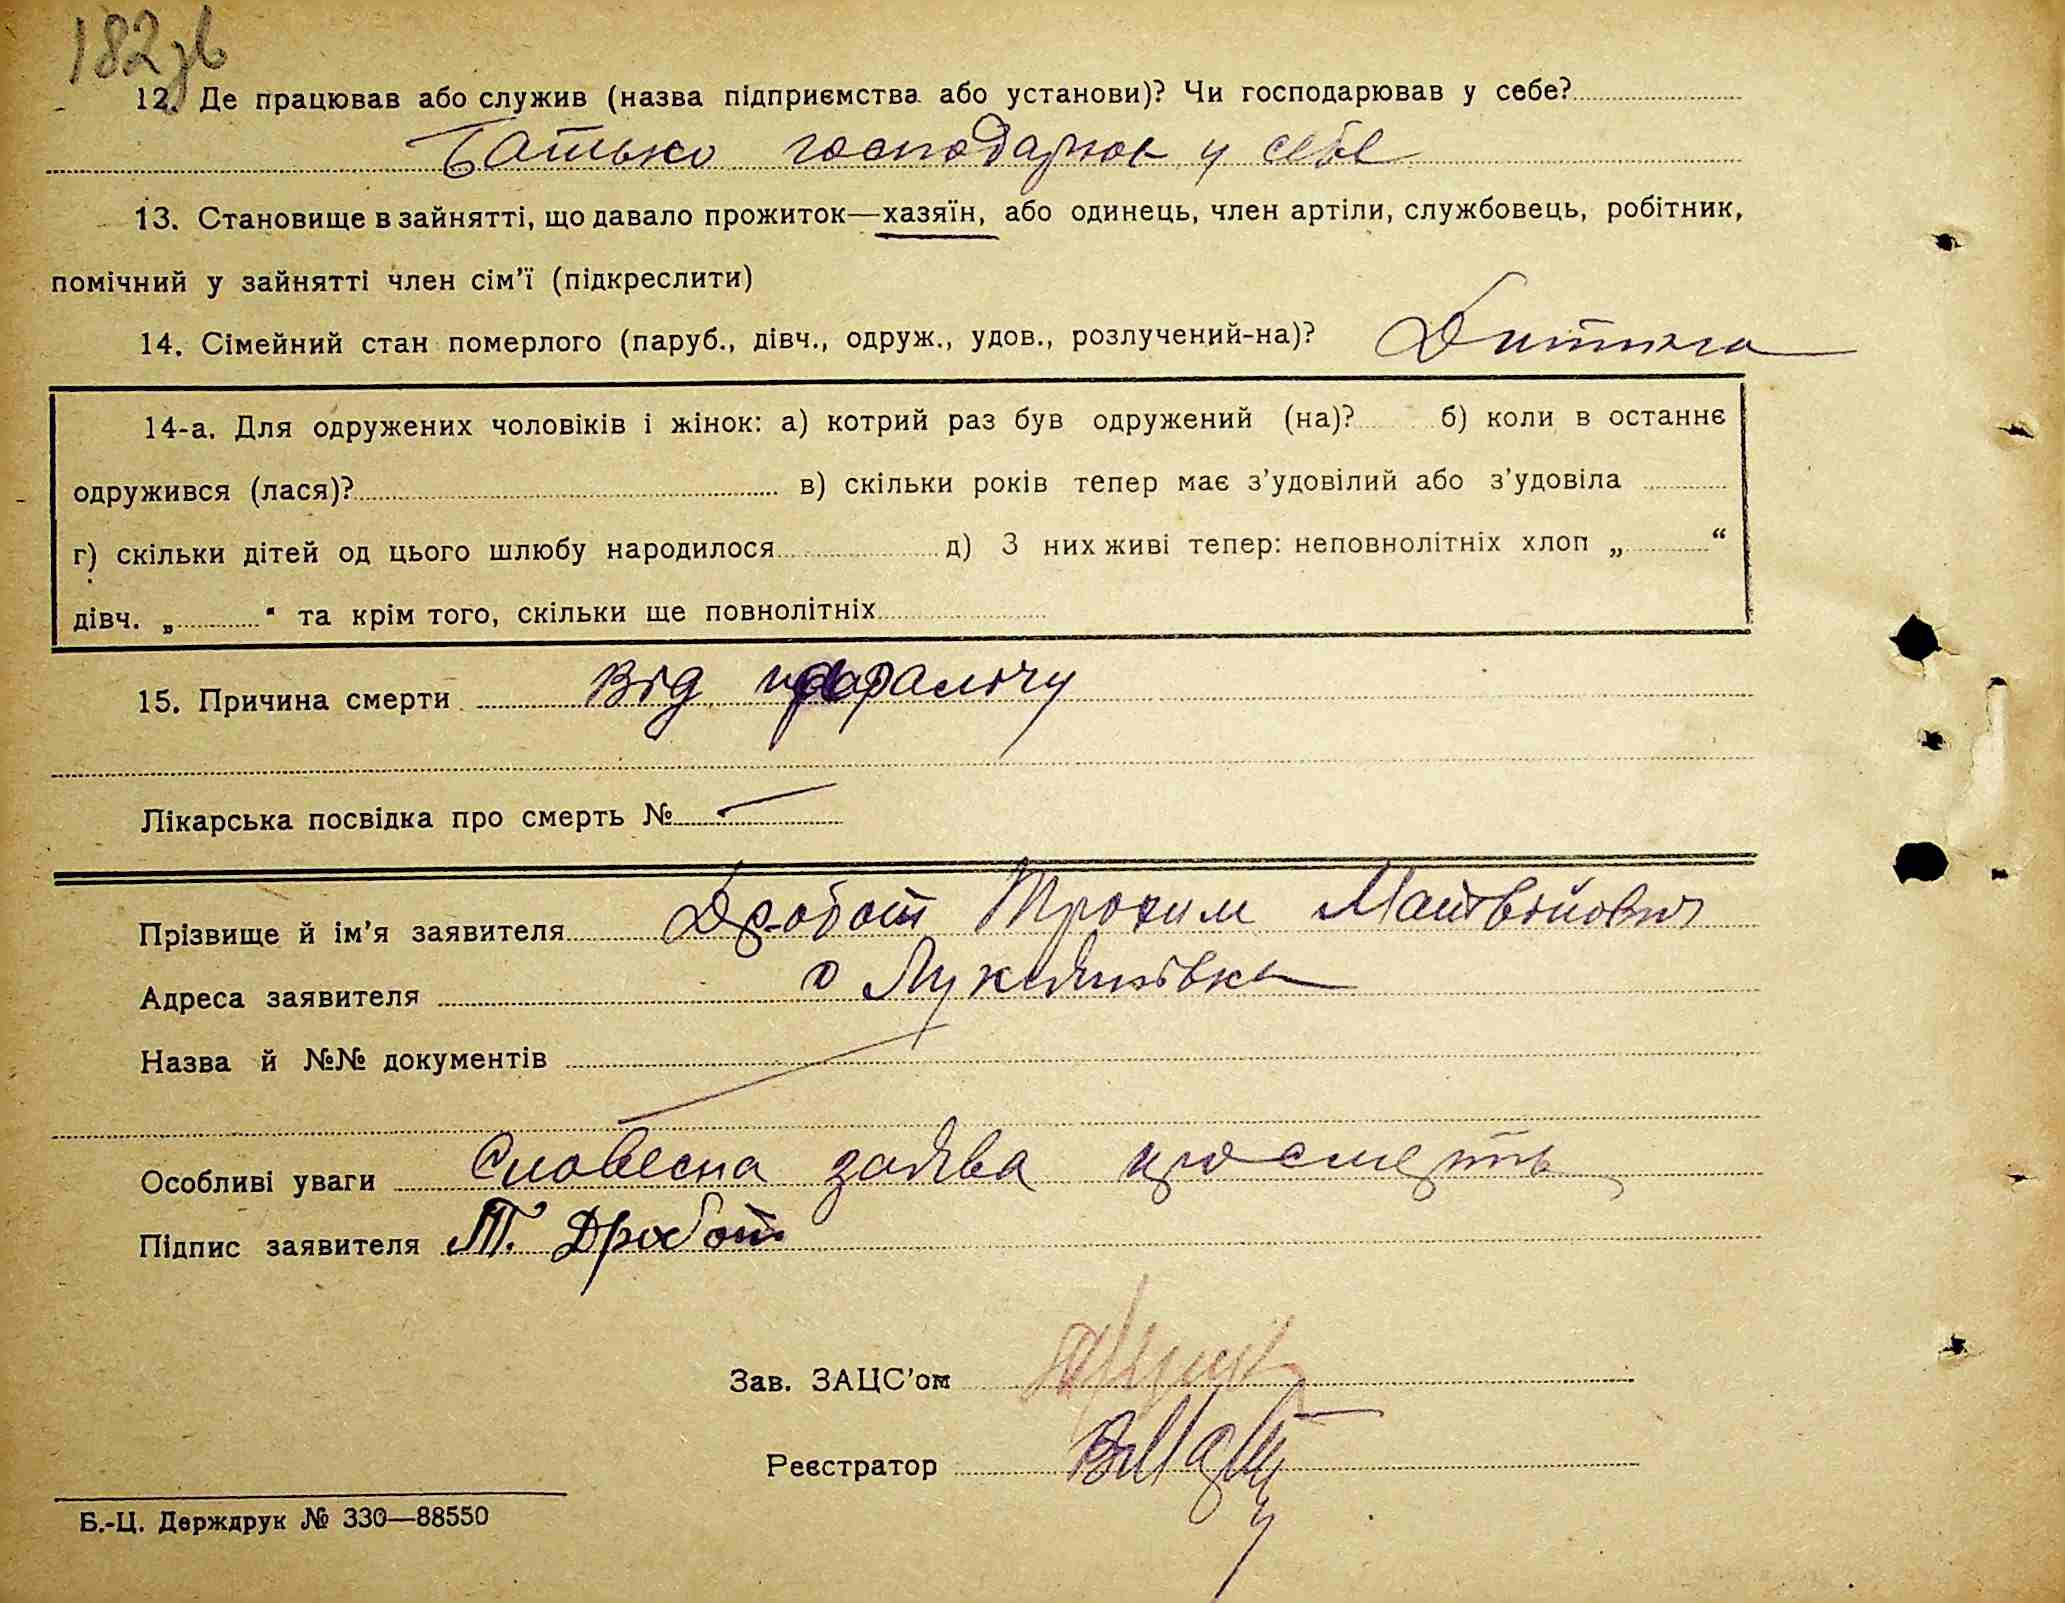 182зв
12. Де працював або служив (назва підприємства або установи)? Чи господарював у себе?
Батько господарює у себе
13. Становище в зайнятті, що давало прожиток—хазяїн, або одинець, член артіли, службовець, робітник,
помічний у зайнятті член сім'ї (підкреслити)
14. Сімейний стан померлого (паруб., дівч., одруж., удов., розлучений-на)? Дитина
14-а. Для одружених чоловіків і жінок: а) котрий раз був одружений (на)? б) коли в останнє
одружився (лася)? в) скільки років тепер має з'удовілий або з'удовіла
г) скільки дітей од цього шлюбу народилося д) З них живі тепер: неповнолітніх хлоп „ “
дівч. „ “ та крім того, скільки ще повнолітніх
15. Причина смерти Від паралічу
Лікарська посвідка про смерть № —
Прізвище й ім'я заявителя Дробот Трохим Матвійович
Адреса заявителя с Лукянівка
Назва й №№ документів
Особливі уваги Словесна заява про смерть
Підпис заявителя Т. Дробот
Зав. ЗАЦС'ом
Реєстратор
Б.-Ц. Держдрук № 330—88550